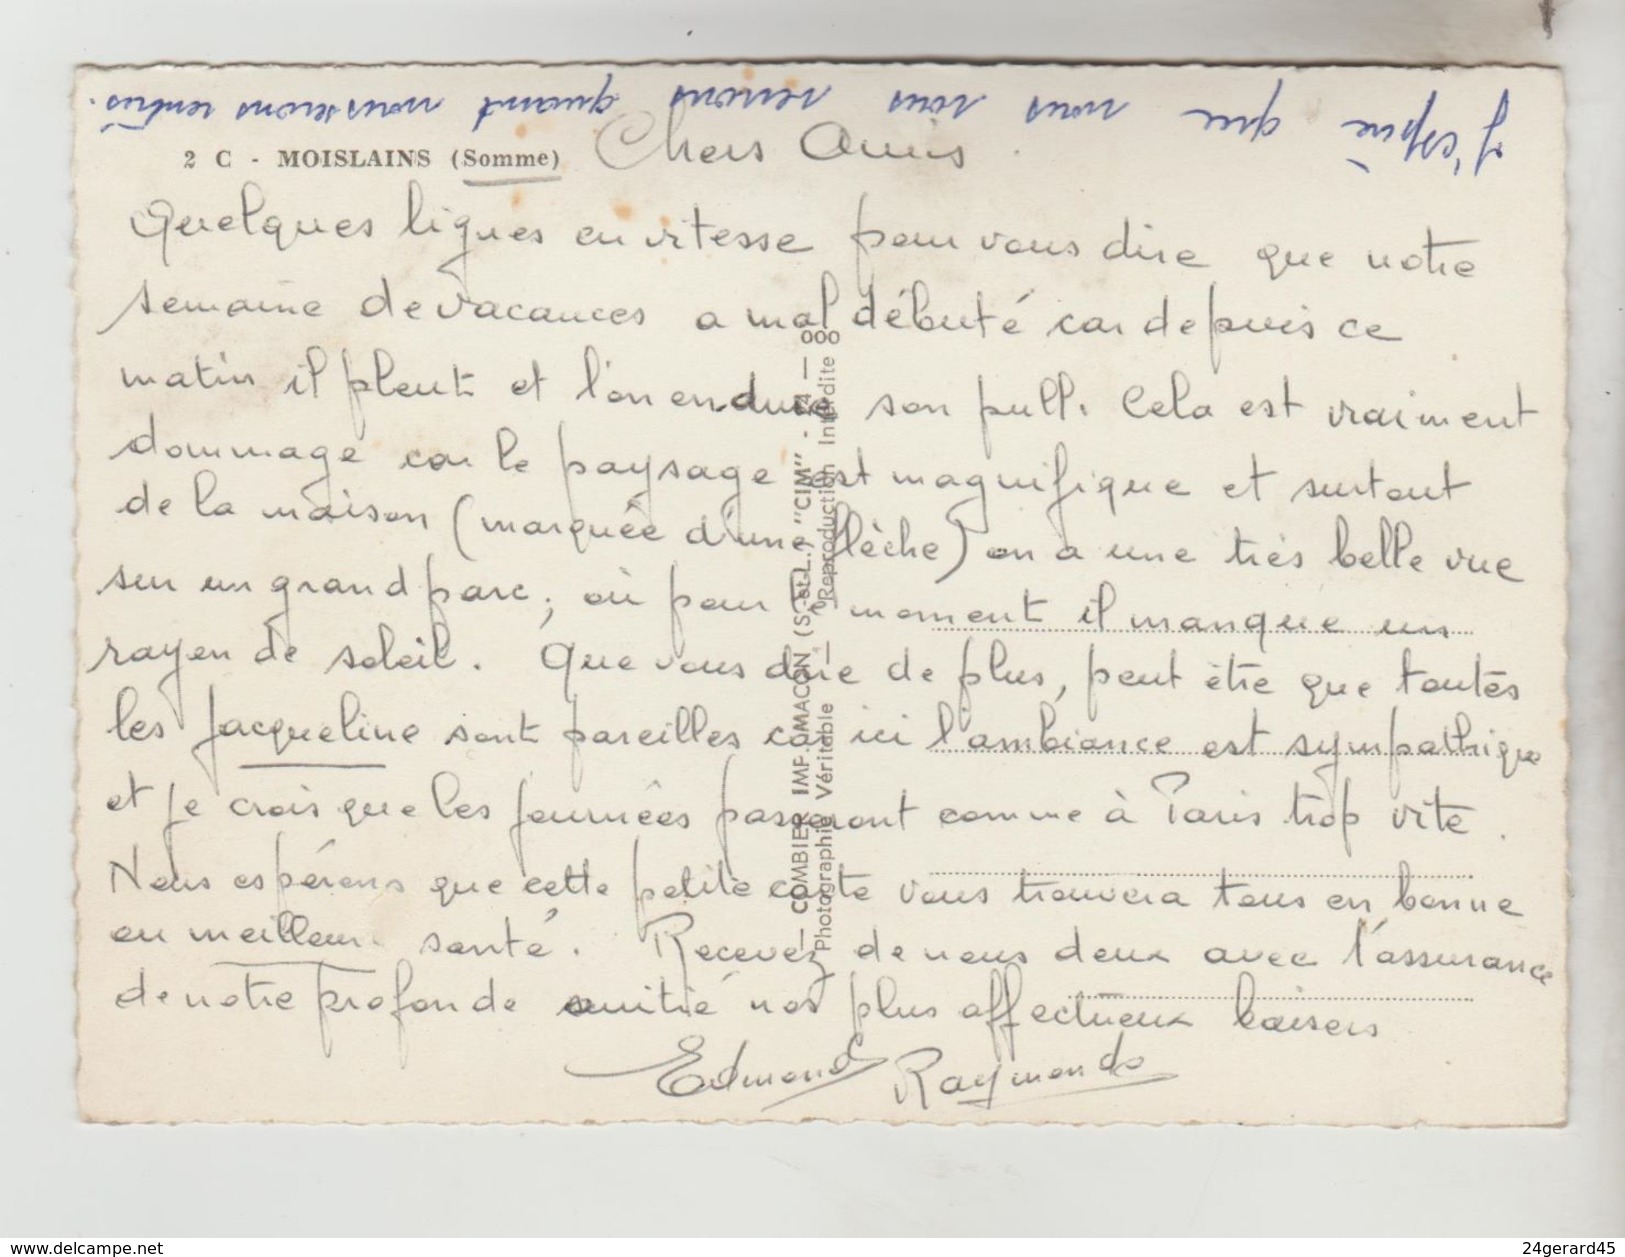 J'espère que nous vous verrons quant nous serons rentrés.
2 C - MOISLAINS (Somme)
Chers Amis.
Quelques lignes en vitesse pour vous dire que notre
semaine de vacances a mal débuté car depuis ce
matin il pleut et l'on endure son pull. Cela est vraiment
dommage car le paysage est magnifique et surtout
de la maison (marquée d'une flèche) on a une très belle vue
sur un grand parc, où pour le moment il manque un
rayon de soleil. Que vous dire de plus, peut être que toutes
les Jacqueline sont pareilles car ici l'ambiance est sympathique
et je crois que les journées passeront comme à Paris trop vite.
Nous espérons que cette petite carte vous trouvera tous en bonne
ou meilleur santé. Recevez de nous deux avec l'assurance
de notre profonde amitié nos plus affectueux baisers
Edmond Raymonde
— COMBIER IMP. MACON (S.-et-L.) "CIM" - 74 — 000
Photographie Véritable — Reproduction Interdite
www.delcampe.net
24gerard45